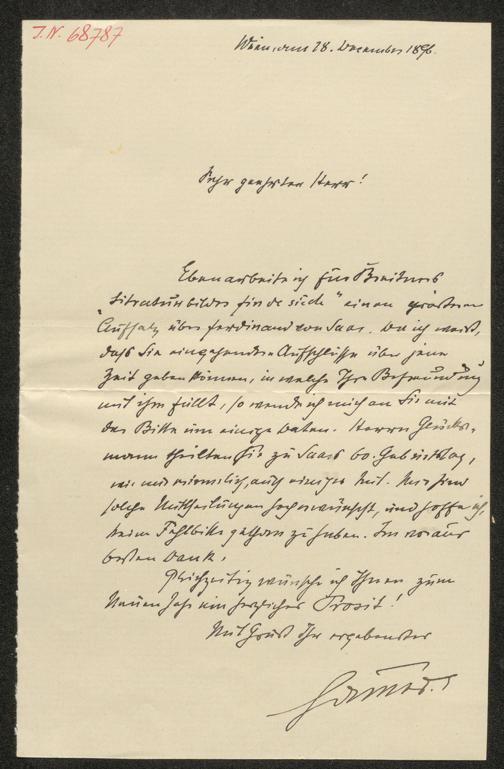 J.N. 68787
Wien, am 28. December 1896.
Sehr geehrter Herr!
Eben arbeite ich für Breitners
„Literaturbilder fin de siècle" einen größeren
Aufsatz über Ferdinand von Saar. Da ich weiß,
daß Sie eingehenden Aufschlüsse über jene
Zeit geben können, in welche Ihre Befreundung
mit ihm fällt, so wende ich mich an Sie mit
der Bitte um einige Daten. Herrn Glücks-
mann theilten Sie zu Saars 60. Geburtstag,
wie mir erinnerlich, auch einiges mit. Mir sind
solche Mittheilungen sehr erwünscht, und hoffe ich,
keine Fehlbitte gethan zu haben. Im voraus
besten Dank.
Gleichzeitig wünsche ich Ihnen zum
Neuen Jahr ein herzliches Prosit!
Mit Gruß Ihr ergebenster